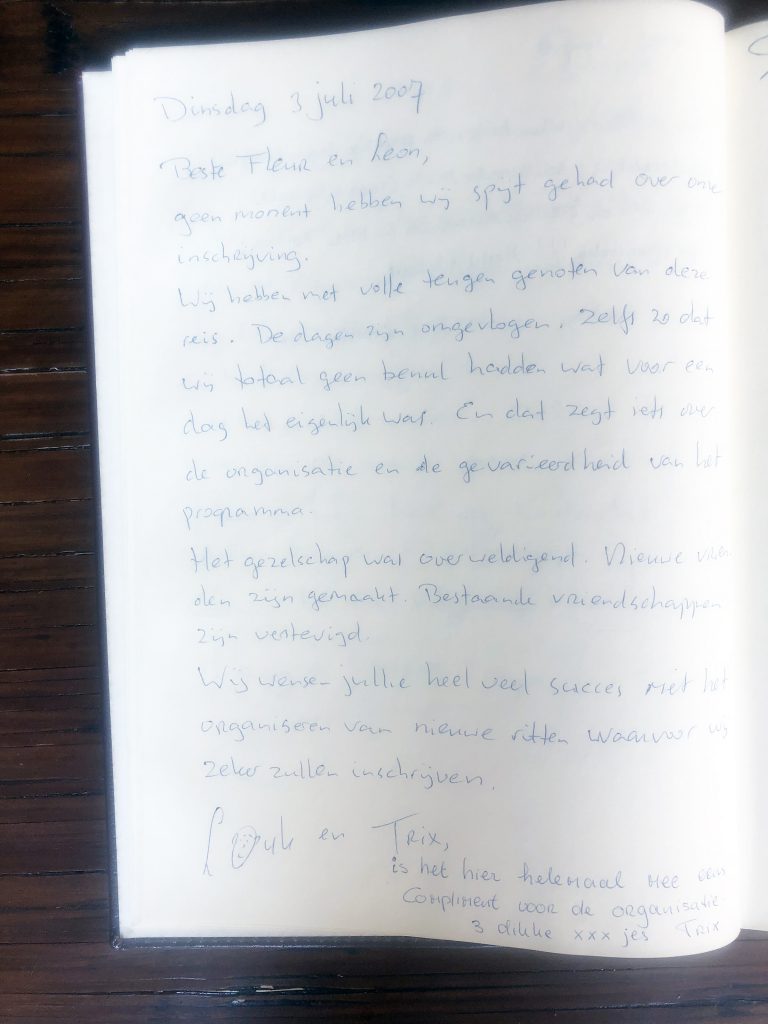 Dinsdag 3 juli 2007
Beste Fleur en Leon,
geen moment hebben wij spijt gehad over onze
inschrijving.
Wij hebben met volle teugen genoten van deze
reis. De dagen zijn omgevlogen. Zelfs zo dat
wij totaal geen benul hadden wat voor een
dag het eigenlijk was. En dat zegt iets over
de organisatie en de gevarieerdheid van het
programma.
Het gezelschap was overweldigend. Nieuwe vrien
den zijn gemaakt. Bestaande vriendschappen
zijn verstevigd.
Wij wensen jullie heel veel succes met het
organiseren van nieuwe ritten waarvoor wij
zeker zullen inschrijven.
en Trix,
is het hier helemaal mee eens
Compliment voor de organisatie
3 dikke xxx jes Trix